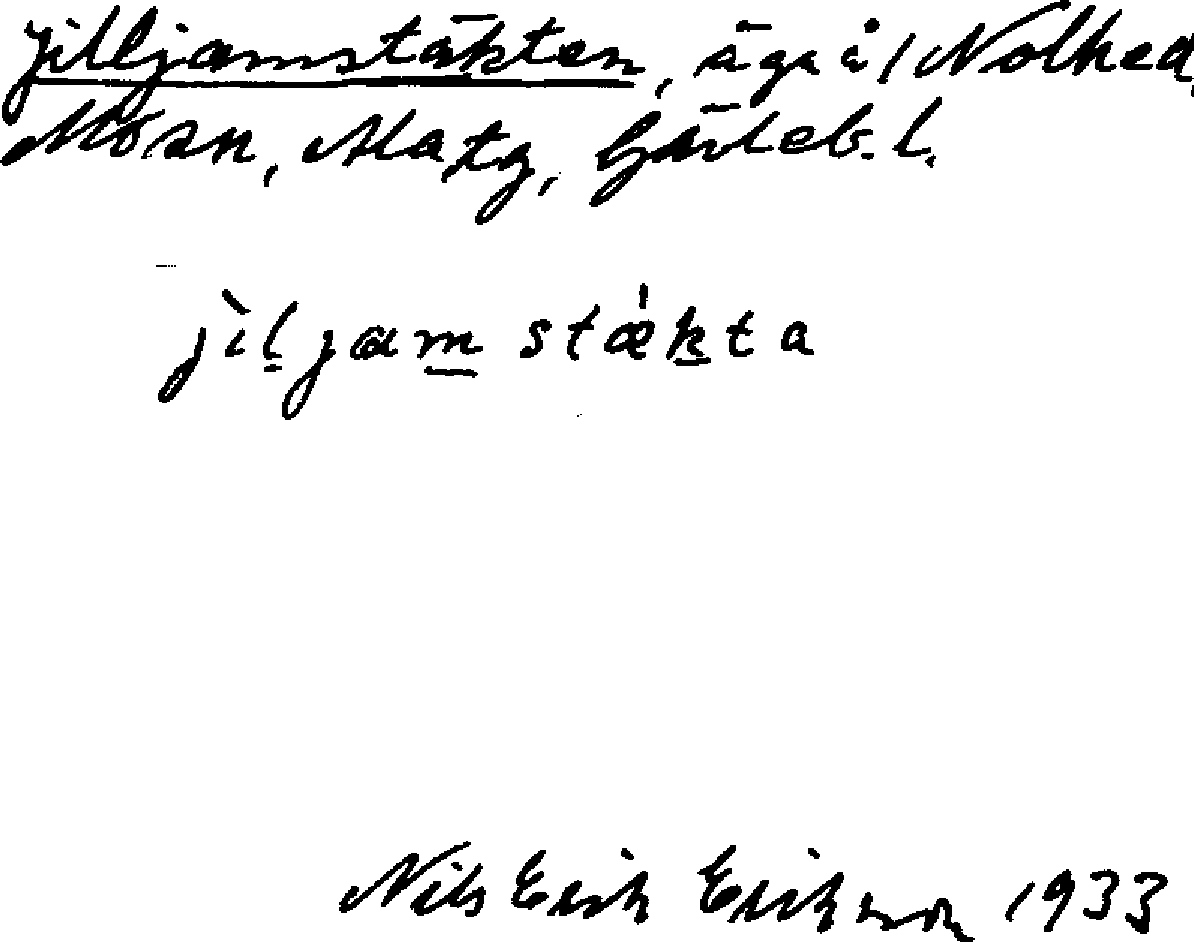 Jilljamstäkten, äga å / Nolhed,
Mo sn, Matg, Gävleb. l.
jìljam stǽkta
Nils Erik Erikson 1933